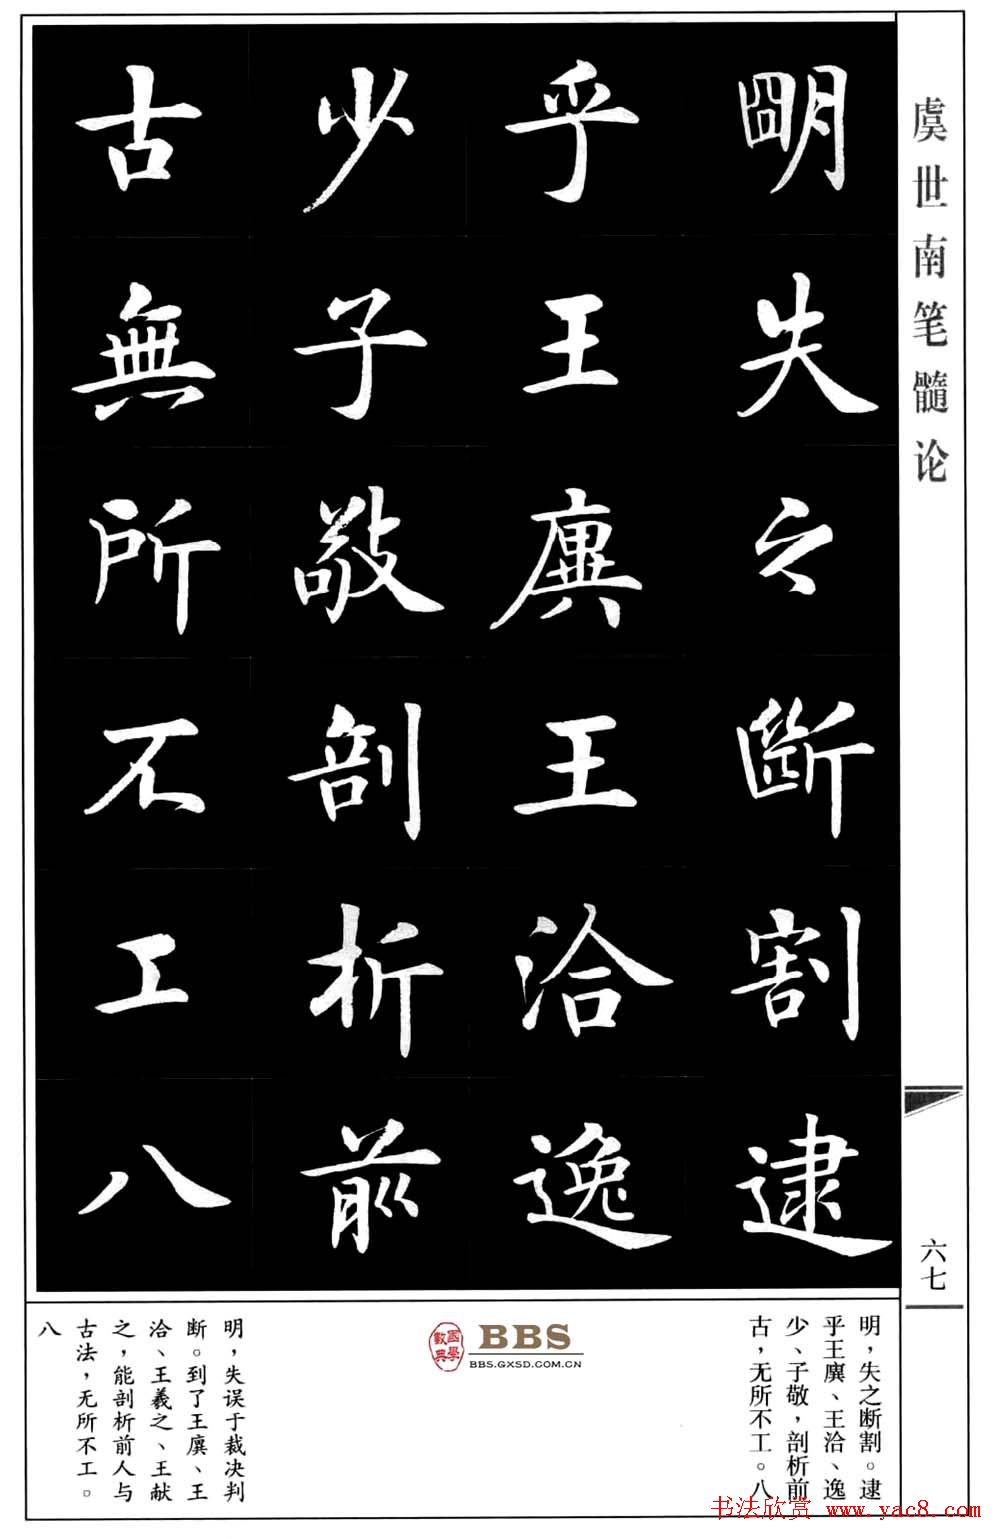 虞世南笔髓论
明失之斷割逮
乎王廙王洽逸
少子敬剖析前
古無所不工八
六七
明，失之断割。逮
乎王廙、王洽、逸
少、子敬，剖析前
古，无所不工。八
國學數典
BBS
BBS.GXSD.COM.CN
明，失误于裁决判
断。到了王廙、王
洽、王羲之、王献
之，能剖析前人与
古法，无所不工。
八
书法欣赏 www.yac8.com